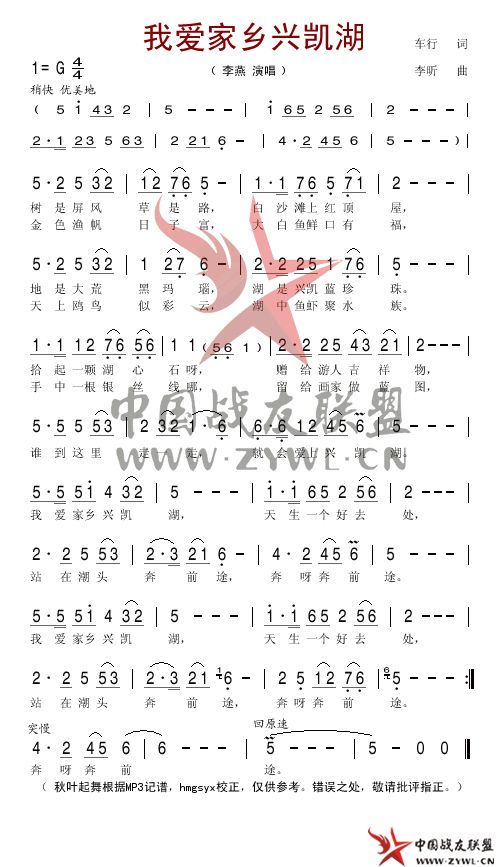 我爱家乡兴凯湖
车行 词
1=G 4/4
（李燕 演唱）
李昕 曲
稍快 优美地
( 5 i 43 2 5 - - - 1 65 25 56
2·1 23 5 63 2·2 21 6 - 4·2 45 6 5 - - - )
5·2 5 32 12 76 5 - 1·1 76 5 71 2 - - -
树是屏风 草是路， 白沙滩上红顶 屋，
金色渔帆 日子富， 大白鱼鲜口有 福，
5·2 5 32 1 27 6 - 2·2 23 1 76 5 - - -
地是大荒 黑玛瑙， 湖是兴凯蓝珍 珠。
天上鸥鸟 似彩云， 湖中鱼虾聚水 族。
1·1 12 76 56 1 1 (56 1) 2·2 23 5 43 2 - - -
拾起一颗湖心石呀， 赠给游人吉祥 物，
手中一根银丝线哪， 留给画家做蓝 图，
中国战友联盟
WWW.ZYWL.CN
5·5 5 53 2 32 1·6 2·2 21 6 45 6 5 - - -
谁到这里 走一走， 就会爱上兴凯 湖。
5·5 5i 4 32 5 - - - 1·1 65 2 56 2 - - -
我爱家乡兴凯 湖， 天生一个好去 处，
2·2 5 53 2·3 21 6 - 4·2 45 6 5 - - -
站在潮头 奔前途， 奔呀奔前 途。
5·5 5i 4 32 5 - - - 1·1 65 2 56 2 - - -
我爱家乡兴凯 湖， 天生一个好去 处，
2·2 5 53 2·3 21 6 - 4·2 45 12 5 - - - :||
站在潮头 奔前途， 奔呀奔前 途。
突慢 回原速
4·2 45 6 6 - - 6 5 - - - 5 - 0 0
奔呀奔前 途。
（ 秋叶起舞根据MP3记谱，hmgsyx校正，仅供参考。错误之处，敬请批评指正。）
中国战友联盟
WWW.ZYWL.CN